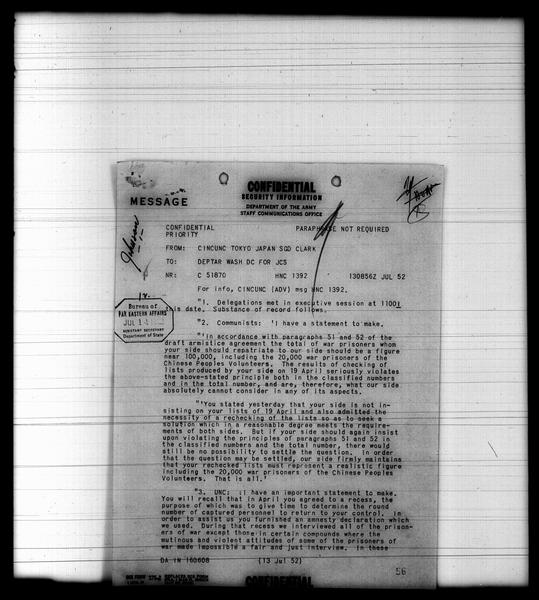 CONFIDENTIAL
SECURITY INFORMATION
MESSAGE
DEPARTMENT OF THE ARMY
STAFF COMMUNICATIONS OFFICE
CONFIDENTIAL PARAPHRASE NOT REQUIRED
PRIORITY
Johnson
FROM: CINCUNC TOKYO JAPAN SGD CLARK
TO: DEPTAR WASH DC FOR JCS
NR: C 51870 HNC 1392 130856Z JUL 52
For info, CINCUNC (ADV) msg HNC 1392.
Bureau of
FAR EASTERN AFFAIRS
JUL 14
ASSISTANT SECRETARY
Department of State
"1. Delegations met in executive session at 1100I
this date. Substance of record follows.
"2. Communists: 'I have a statement to make.
"'In accordance with paragraphs 51 and 52 of the
draft armistice agreement the total of war prisoners whom
your side should repatriate to our side should be a figure
near 100,000, including the 20,000 war prisoners of the
Chinese Peoples Volunteers. The results of checking of
lists produced by your side on 19 April seriously violates
the above-stated principle both in the classified numbers
and in the total number, and are, therefore, what our side
absolutely cannot consider in any of its aspects.
"'You stated yesterday that your side is not in-
sisting on your lists of 19 April and also admitted the
necessity of a rechecking of the lists so as to seek a
solution which in a reasonable degree meets the require-
ments of both sides. But if your side should again insist
upon violating the principles of paragraphs 51 and 52 in
the classified numbers and the total number, there would
still be no possibility to settle the question. In order
that the question may be settled, our side firmly maintains
that your rechecked lists must represent a realistic figure
including the 20,000 war prisoners of the Chinese Peoples
Volunteers. That is all.'
"3. UNC: 'I have an important statement to make.
You will recall that in April you agreed to a recess, the
purpose of which was to give time to determine the round
number of captured personnel to return to your control. In
order to assist us you furnished an amnesty declaration which
we used. During that recess we interviewed all of the prison-
ers of war except those in certain compounds where the
mutinous and violent attitudes of some of the prisoners of
war made impossible a fair and just interview. In these
DA IN 160608 (13 Jul 52)
56
CONFIDENTIAL